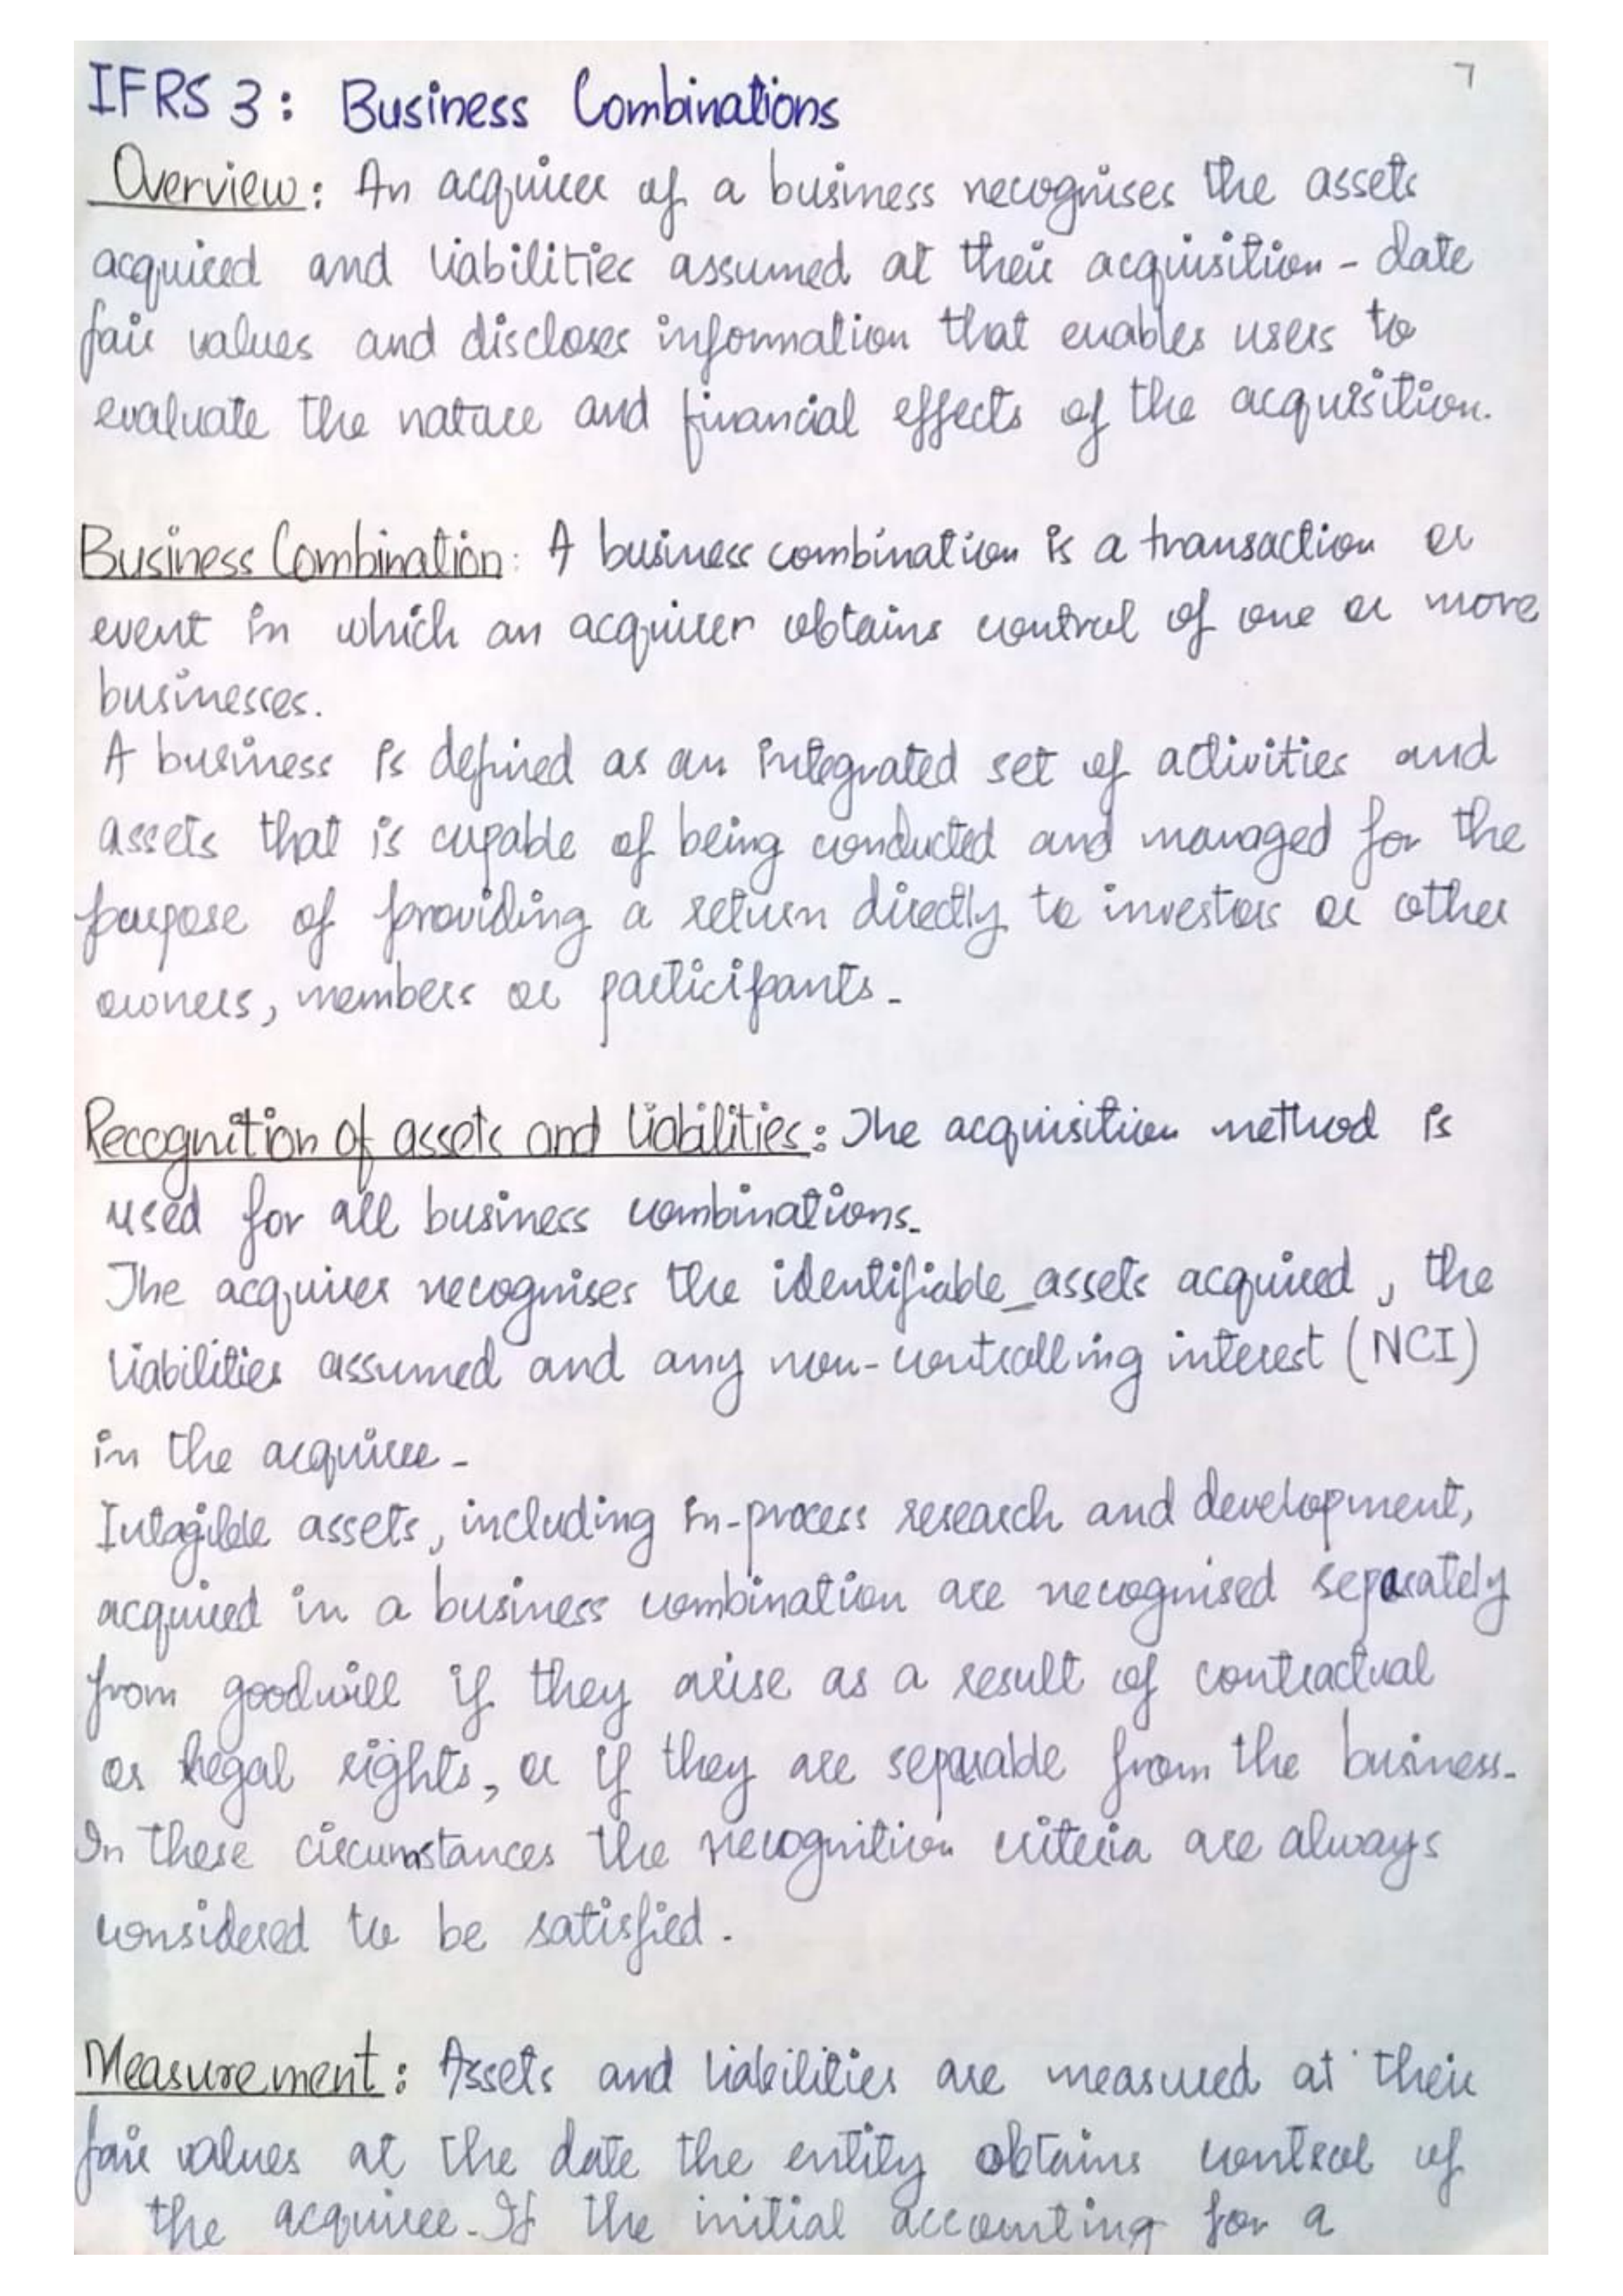 7
IFRS 3: Business Combinations
Overview: An acquirer of a business recognises the assets
acquired and liabilities assumed at their acquisition-date
fair values and discloses information that enables users to
evaluate the nature and financial effects of the acquisition.
Business Combination: A business combination is a transaction or
event in which an acquirer obtains control of one or more
businesses.
A business is defined as an integrated set of activities and
assets that is capable of being conducted and managed for the
purpose of providing a return directly to investors or other
owners, members or participants.
Recognition of assets and liabilities: The acquisition method is
used for all business combinations.
The acquirer recognises the identifiable assets acquired, the
liabilities assumed and any non-controlling interest (NCI)
in the acquiree.
Intagible assets, including in-process research and development,
acquired in a business combination are recognised separately
from goodwill if they arise as a result of contractual
or legal rights, or if they are separable from the business.
In these circumstances the recognition criteria are always
considered to be satisfied.
Measurement: Assets and liabilities are measured at their
fair values at the date the entity obtains control of
the acquiree. If the initial accounting for a